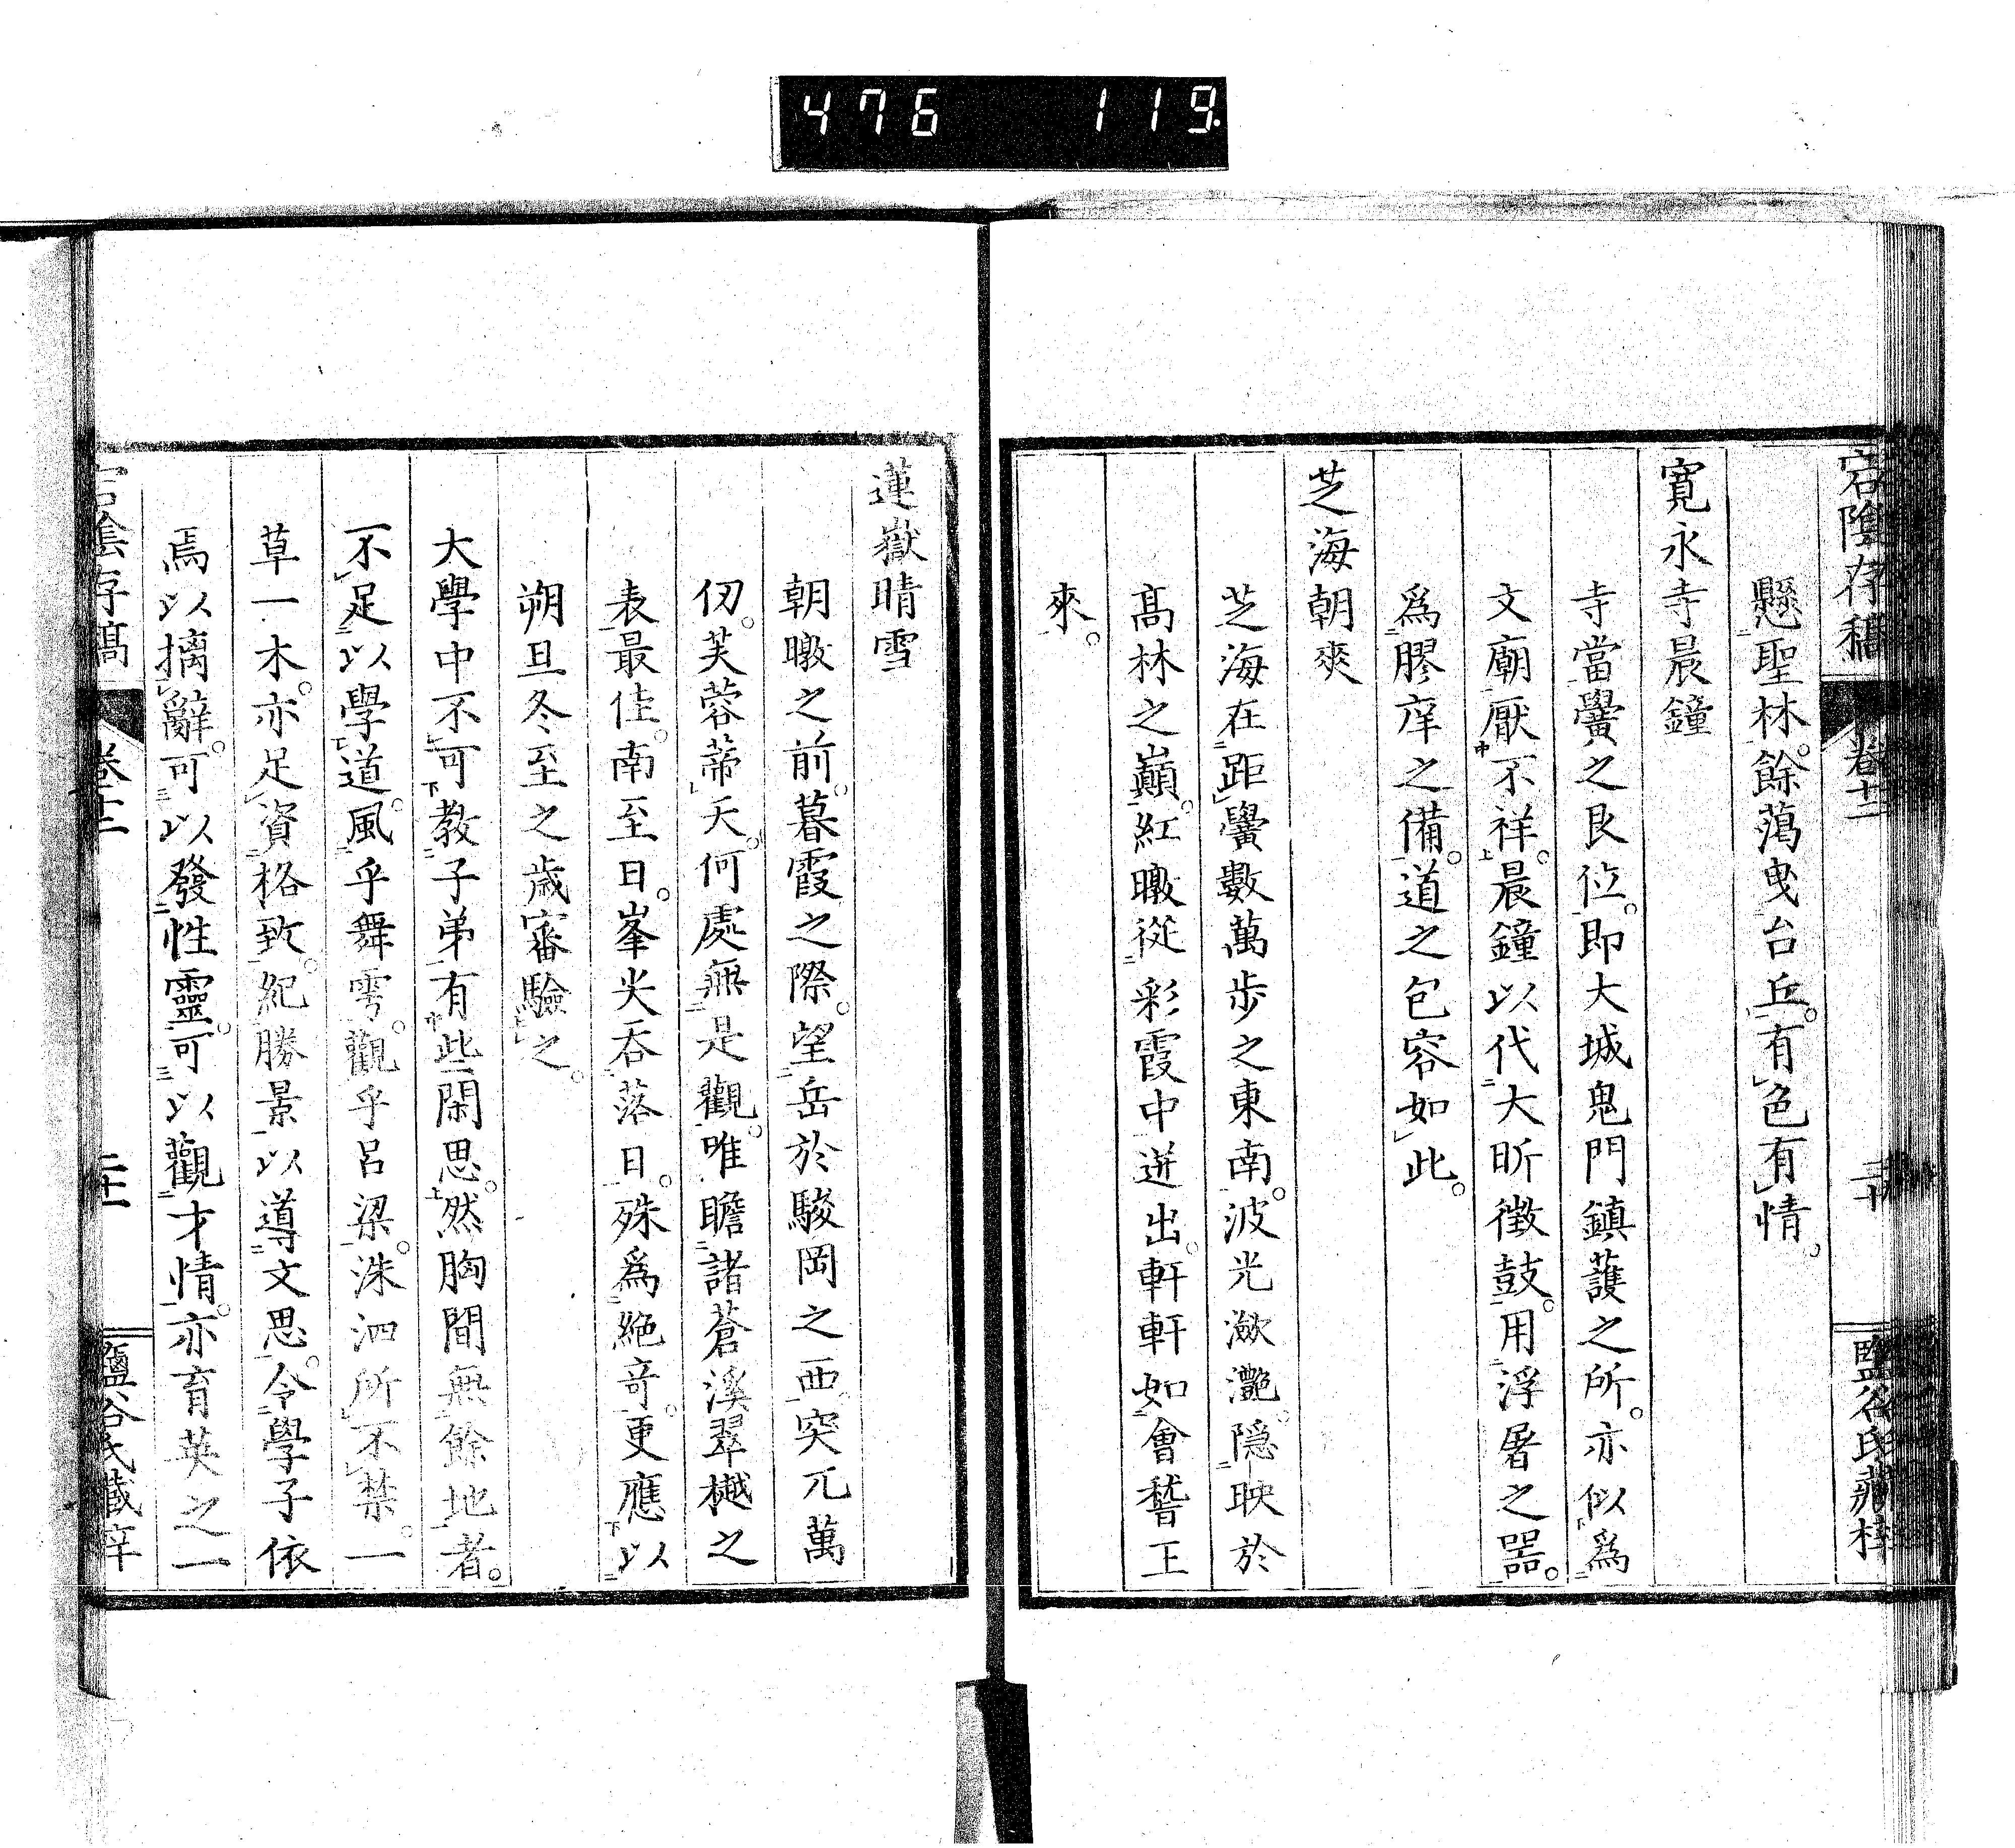 476 119
宕陰存稿 卷十二 二十 鹽谷氏藏梓
懸聖林。餘蕩曳台丘。有色有情。
寛永寺晨鐘
寺當黌之艮位。即大城鬼門鎮護之所。亦似爲
文廟厭不祥。晨鐘以代大昕徴鼓。用浮屠之噐。
爲膠庠之備。道之包容如此。
芝海朝爽
芝海在距黌數萬步之東南。波光瀲灔。隠映於
髙林之巔。紅暾從彩霞中迸出。軒軒如會稽王
來。
蓮嶽晴雪
朝暾之前。暮霞之際。望岳於駿岡之西。突兀萬
仞。芙蓉蒂天。何處無是觀。唯瞻諸蒼溪翠樾之
表最佳。南至日。峯尖吞落日。殊爲絶竒。更應以
朔旦冬至之歲審驗之。
大學中不可教子弟有些閑思。然胸間無餘地者。
不足以學道。風乎舞雩。觀乎呂梁。洙泗所不禁。一
草一木。亦足資格致。紀勝景以導文思。令學子依
焉以摛辭。可以發性靈。可以觀才情。亦育英之一
宕陰存稿 卷十二 二十一 鹽谷氏藏梓